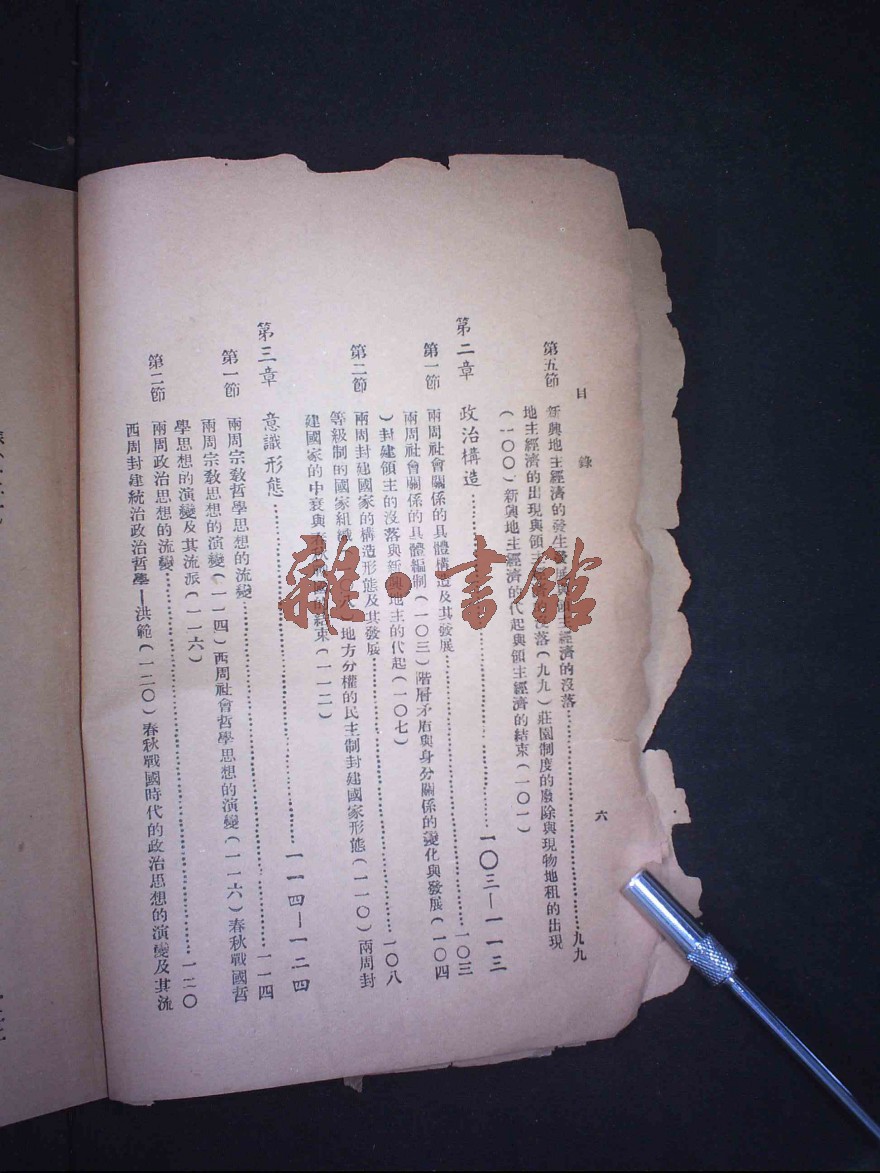 目錄
六
第五節 新興地主經濟的發生發展與領主經濟的沒落……九九
地主經濟的出現與領主 沒落(九九)莊園制度的廢除與現物地租的出現
(一〇〇)新興地主經濟的代起與領主經濟的結束(一〇一)
第二章 政治構造……一〇三—一一三
第一節 兩周社會關係的具體構造及其發展……一〇三
兩周社會關係的具體編制(一〇三)階層矛盾與身分關係的變化與發展(一〇四
)封建領主的沒落與新興地主的代起(一〇七)
第二節 兩周封建國家的構造形態及其發展……一〇八
等級制的國家組織 地方分權的民主制封建國家形態(一一〇)兩周封
建國家的中衰與春秋 的結束(一一二)
第三章 意識形態……一一四—一二四
第一節 兩周宗教哲學思想的流變……一一四
兩周宗教思想的演變(一一四)西周社會哲學思想的演變(一一六)春秋戰國哲
學思想的演變及其流派(一一六)
第二節 兩周政治思想的流變……一二〇
西周封建統治政治哲學—洪範(一二〇)春秋戰國時代的政治思想的演變及其流
雜·書館